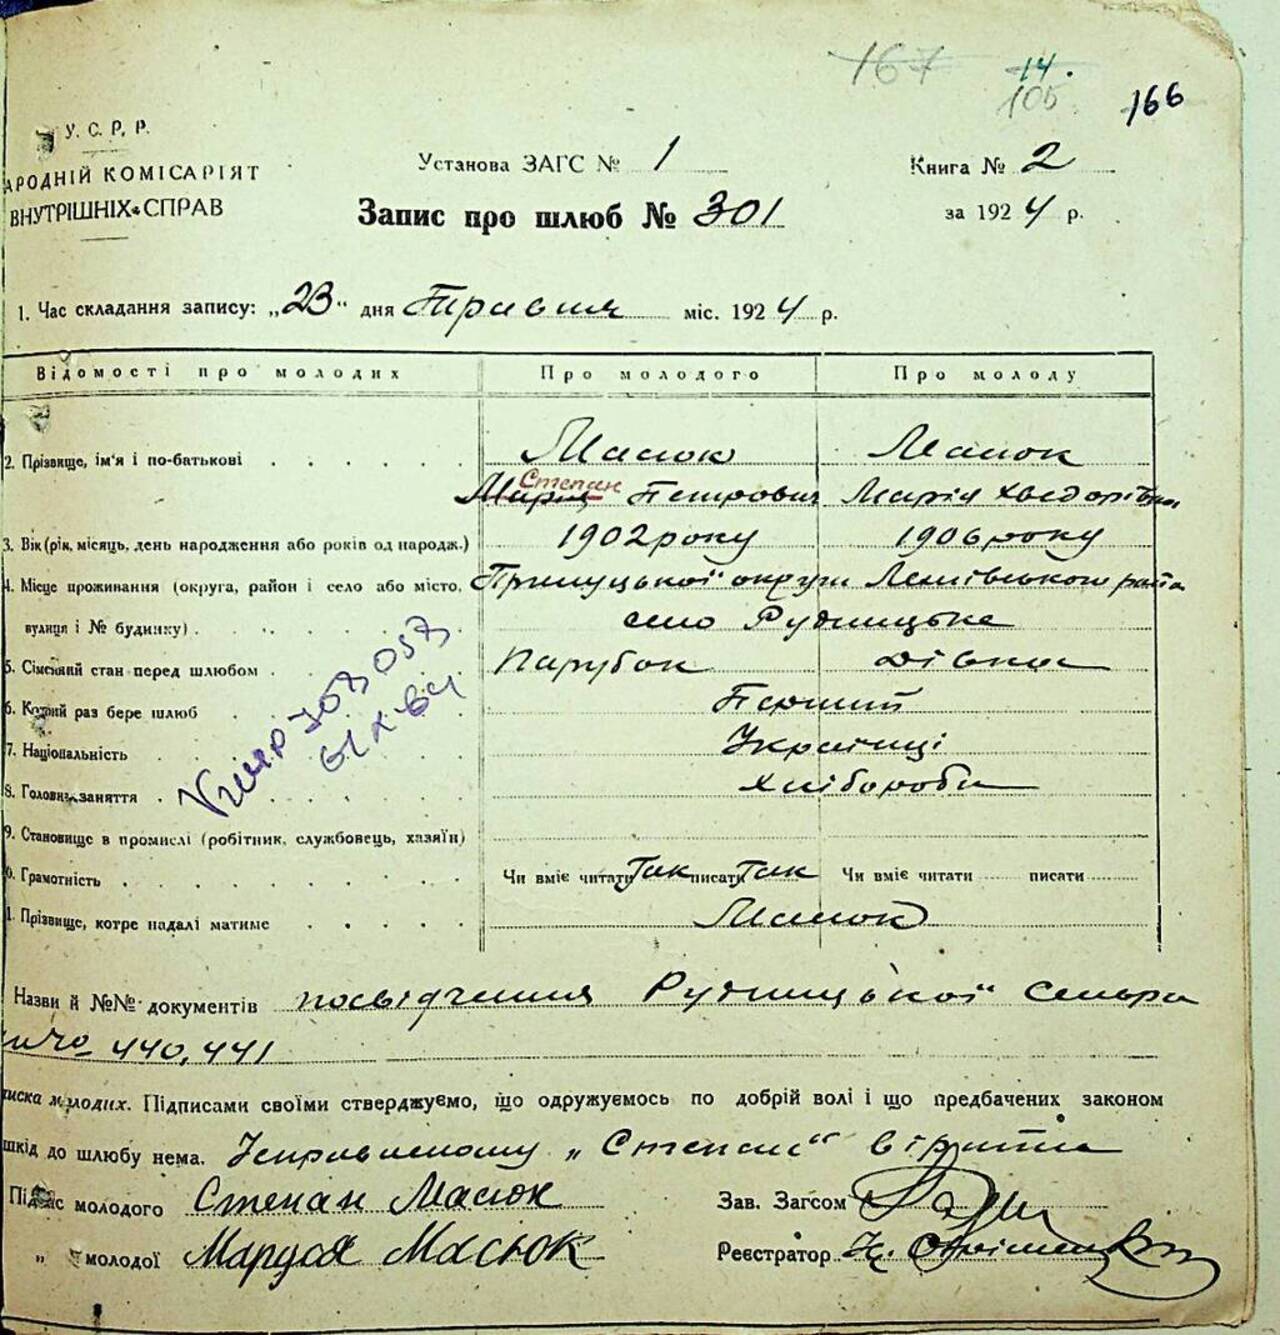 167 14.
105 166
У. С. Р. Р.
АРОДНІЙ КОМІСАРІЯТ
ВНУТРІШНІХ СПРАВ
Установа ЗАГС № 1
Книга № 2
Запис про шлюб № 301
за 1924 р.
1. Час складання запису: „23“ дня Травня міс. 1924 р.
Відомості про молодих Про молодого Про молоду
2. Прізвище, ім'я і по-батькові Масюк Масюк
Степан
Марія Петрович Марія Хведорівна
3. Вік (рік, місяць, день народження або років од народж.) 1902 року 1906 року
4. Місце проживання (округа, район і село або місто, Прилуцької округи району
вулиця і № будинку) село Рудницьке
5. Сімейний стан перед шлюбом Парубок Дівка
6. Котрий раз бере шлюб Перший
7. Національність Українці
8. Головне заняття Хлібороби
9. Становище в промислі (робітник, службовець, хазяїн)
0. Грамотність Чи вміє читати Так писати Так Чи вміє читати писати
1. Прізвище, котре надалі матиме Масюк
Назви й №№ документів посвідчення Рудницької Сельради
440, 441
иска молодих. Підписами своїми стверджуємо, що одружуємось по добрій волі і що предбачених законом
шкід до шлюбу нема. Исправленому „Степан“ вірити
Підпис молодого Степан Масюк Зав. Загсом
„ молодої Маруся Масюк Реєстратор